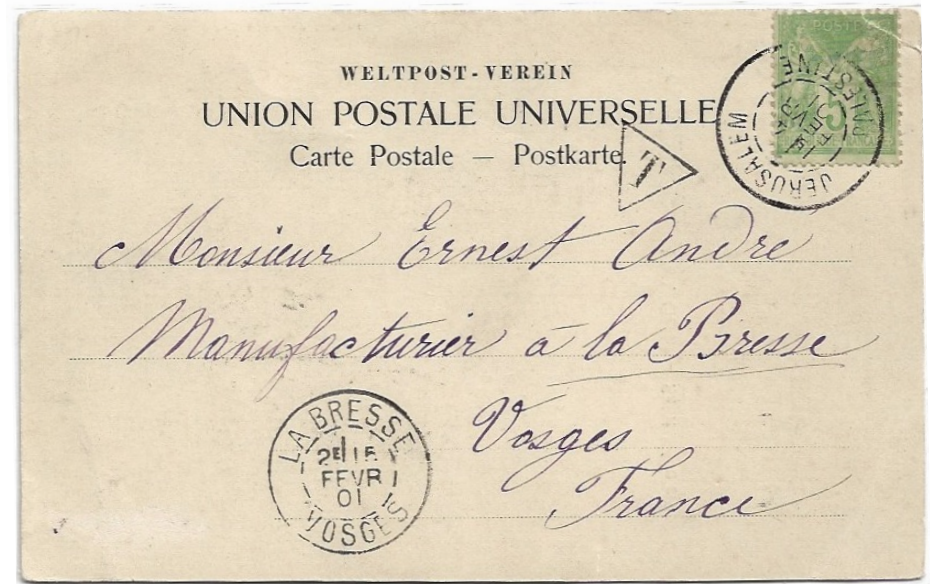 WELTPOST - VEREIN
UNION POSTALE UNIVERSELLE
Carte Postale — Postkarte.
T
POSTE
5
JERUSALEM
PALESTINE
FEVR
Monsieur Ernest André
Manufacturier à la Bresse
Vosges
France
LA BRESSE
2E 15
FEVR
01
VOSGES